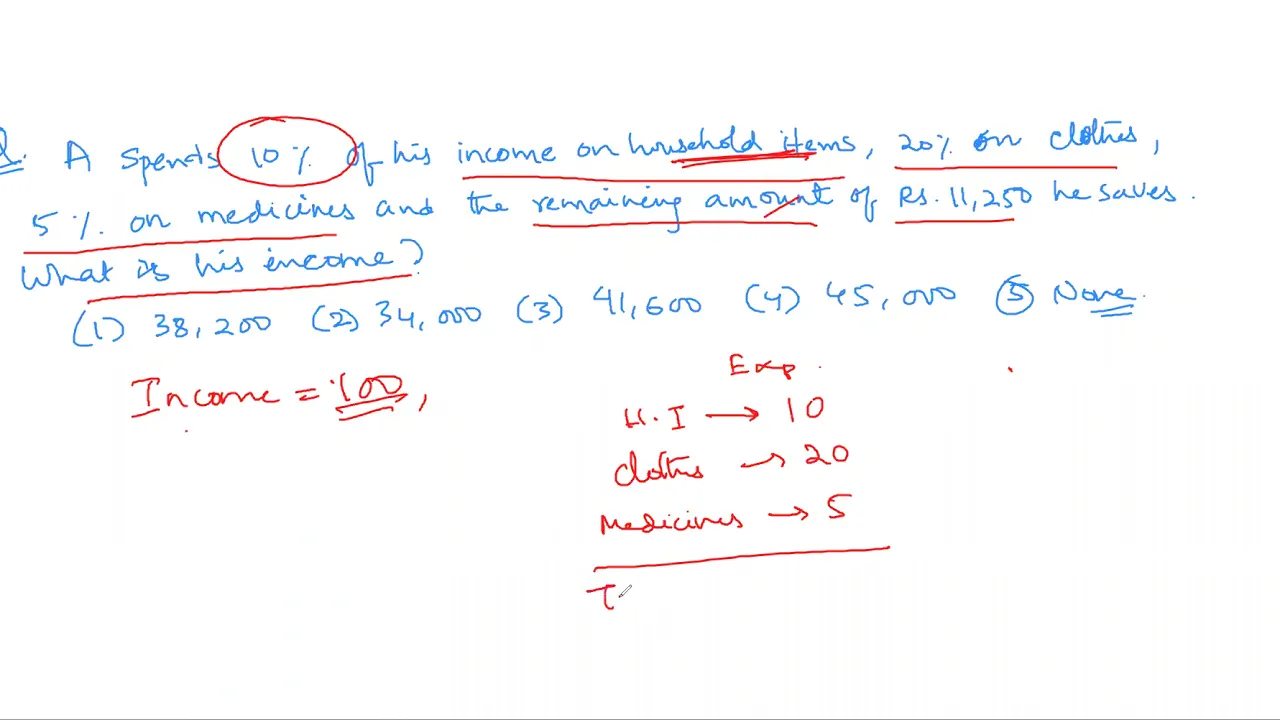 Q. A spends 10% of his income on household items, 20% on clothes,
5%. on medicines and the remaining amount of Rs. 11,250 he saves.
What is his income?
(1) 38,200 (2) 34,000 (3) 41,600 (4) 45,000 (5) None.
Income = 100,
Exp.
H.I → 10
clothes → 20
Medicines → 5
T